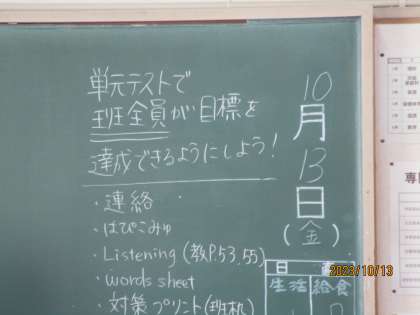 単元テストで
班全員が目標を
達成できるようにしよう！
・連絡
・はぴこみゅ
・Listening (教P.53.55)
・words sheet
・対策プリント(班机)
10
月
13
日
(金)
日
生活 給食
2023/10/13
専